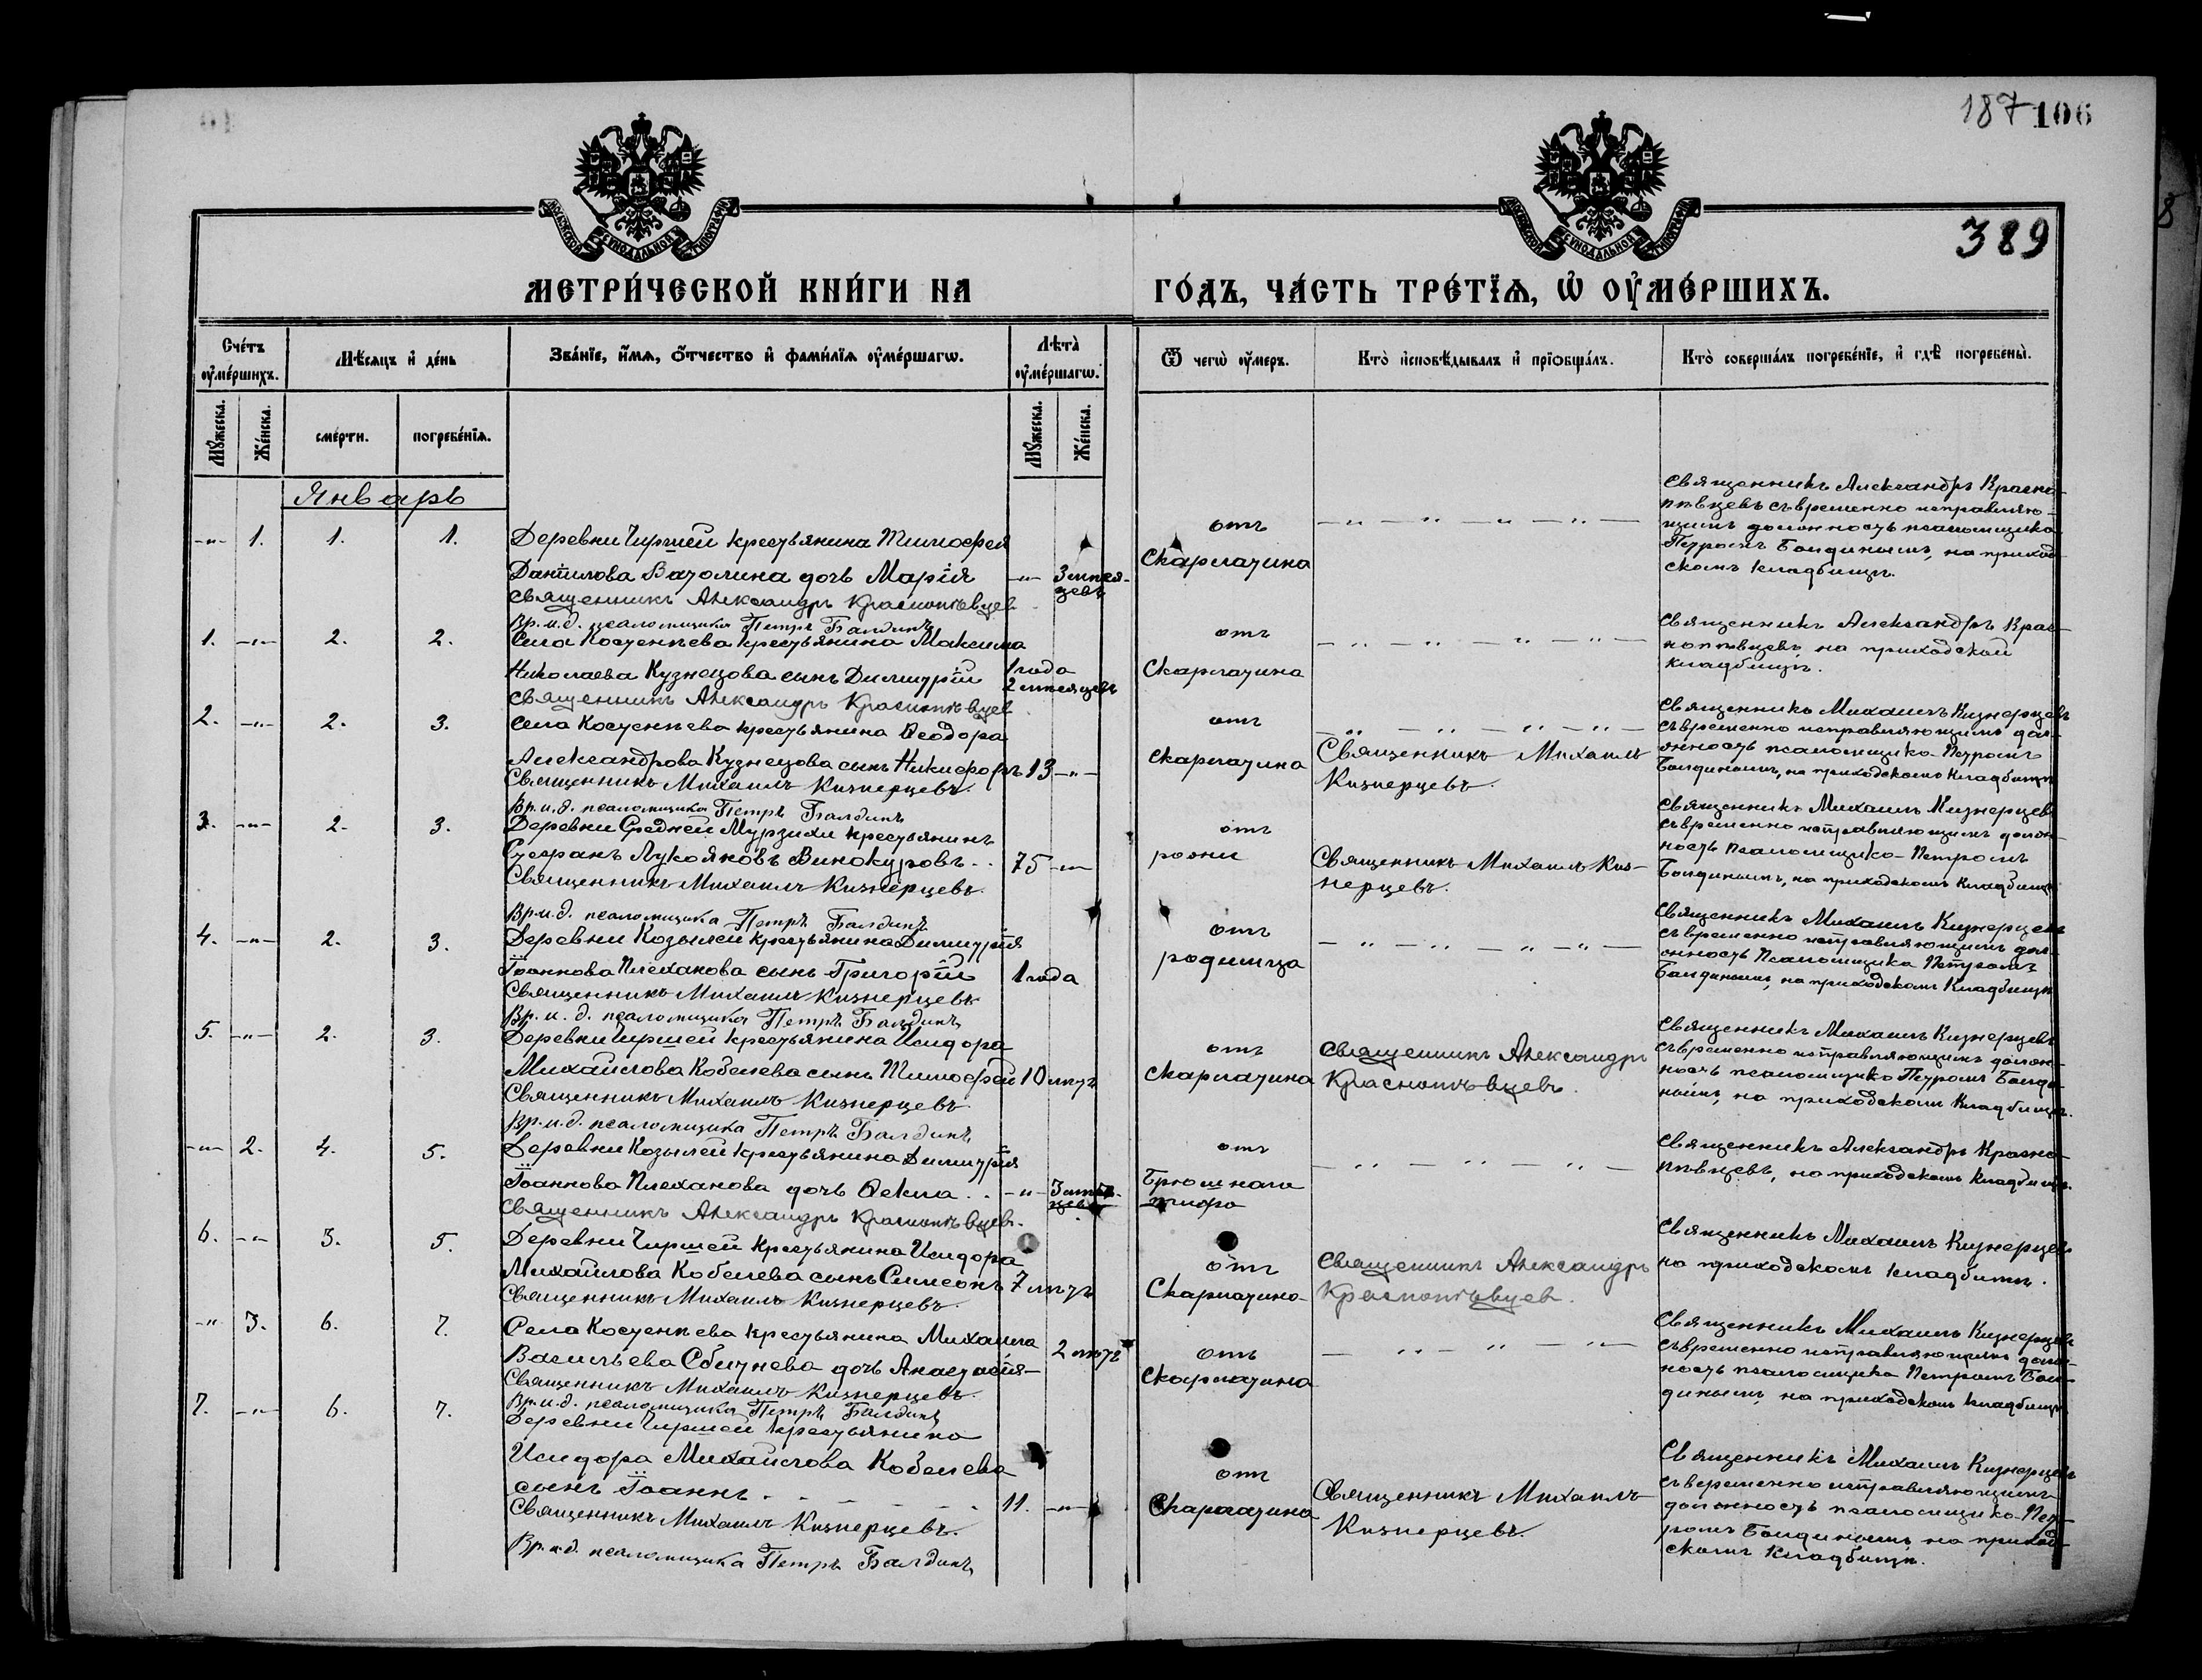 187 106
389
МЕТРИ́ЧЕСКОЙ КНИ́ГИ НА ГО́ДЪ, ЧА́СТЬ ТРЕ́ТЇѦ, Ѡ҆ ОУ҆МЕ́РШИХЪ.
Сче́тъ оу҆ме́ршихъ.
Мѣ́сяцъ и҆ де́нь
Зва́нїе, и҆́мѧ, ѻ҆́тчество и҆ фами́лїѧ оу҆ме́ршагѡ.
Лѣта̀ оу҆ме́ршагѡ.
Ѿ чегѡ̀ оу҆́меръ.
Кто̀ и҆сповѣ́дывалъ и҆ прїѡбща́лъ.
Кто̀ соверша́лъ погребе́нїе, и҆ гдѣ̀ погребены̀.
Мꙋ́жеска.
Же́нска.
сме́рти.
погребе́нїѧ.
Мꙋ́жеска.
Же́нска.
Январь
-"- 1. 1. 1.
Деревни Чиршей крестьянина Тимофея
Данїилова Ватолина дочь Марїя -"- 3 мѣся-
цевъ
Священникъ Александръ Краснопѣвцев
Вр. и. д. псаломщика Петръ Балдинъ
отъ
Скарлатина
-"-"-"-"-
Священникъ Александръ Красно-
пѣвцевъ съ временно исправляю-
щимъ должность псаломщика
Петромъ Балдинымъ, на приход-
скомъ кладбищѣ.
1. -"- 2. 2.
Села Костенѣева крестьянина Максима
Николаева Кузнецова сынъ Димитрїй 1 года
2 мѣсяцевъ
Священникъ Александръ Краснопѣвцев
отъ
Скарлатина
-"-"-"-"-
Священникъ Александръ Крас-
нопѣвцевъ, на приходской
кладбищѣ.
2. -"- 2. 3.
Села Костенѣева крестьянина Ѳеодора
Александрова Кузнецова сынъ Никифоръ 13 -"-
Священникъ Михаилъ Кизнерцевъ.
Вр. и. д. псаломщика Петръ Балдинъ
отъ
скарлатина
-"-"-"-"-
Священникъ Михаилъ
Кизнерцевъ.
Священникъ Михаилъ Кизнерцевъ
съ временно исправляющимъ дол-
жность псаломщика Петромъ
Балдинымъ, на приходскомъ кладбищѣ
3. -"- 2. 3.
Деревни Средней Мурзихи крестьянинъ
Стефанъ Лукояновъ Винокуровъ.. 75 -"-
Священникъ Михаилъ Кизнерцевъ.
Вр. и. д. псаломщика Петръ Балдинъ
отъ
рожи
Священникъ Михаилъ Киз-
нерцевъ.
Священникъ Михаилъ Кизнерцевъ
съ временно исправляющимъ долж-
ность псаломщика Петромъ
Балдинымъ, на приходскомъ кладбищѣ
4. -"- 2. 3.
Деревни Козылей крестьянина Димитрїя
Їоаннова Плеханова сынъ Григорїй 1 года
Священникъ Михаилъ Кизнерцевъ
Вр. и. д. псаломщика Петръ Балдинъ
отъ
родимца
-"-"-"-"-
Священникъ Михаилъ Кизнерцевъ
съ временно исправляющимъ дол-
жность псаломщика Петромъ
Балдинымъ, на приходскомъ кладбищѣ
5. -"- 2. 3.
Деревни Чиршей крестьянина Исидора
Михайлова Кобелева сынъ Тимофей 10 лѣтъ
Священникъ Михаилъ Кизнерцевъ
Вр. и. д. псаломщика Петръ Балдинъ
отъ
скарлатина
Священникъ Александръ
Краснопѣвцевъ.
Священникъ Михаилъ Кизнерцевъ
съ временно исправляющимъ долж-
ность псаломщика Петромъ Балди-
нымъ, на приходскомъ кладбищѣ.
-"- 2. 4. 5.
Деревни Козылей крестьянина Димитрїя
Їоаннова Плеханова дочь Ѳекла .. -"- 3 мѣся-
цевъ
Священникъ Александръ Краснопѣвцев.
отъ
Брюшнаго
тифа
-"-"-"-
Священникъ Александръ Красно-
пѣвцевъ, на приходскомъ кладбищѣ.
6. -"- 3. 5.
Деревни Чиршей крестьянина Исидора
Михайлова Кобелева сынъ Симеонъ 7 лѣтъ
Священникъ Михаилъ Кизнерцевъ.
отъ
Скарлатина
Священникъ Александръ
Краснопѣвцев.
Священникъ Михаилъ Кизнерцевъ
на приходскомъ кладбищѣ.
-"- 3. 6. 7.
Села Костенѣева крестьянина Михаила
Васильева Сбитнева дочь Анастасїя 2 лѣтъ
Священникъ Михаилъ Кизнерцевъ.
Вр. и. д. псаломщика Петръ Балдинъ
отъ
Скарлатина
-"-"-"-
Священникъ Михаилъ Кизнерцевъ
съ временно исправляющимъ долж-
ность псаломщика Петромъ Бал-
динымъ, на приходскомъ кладбищѣ
7. -"- 6. 7.
Деревни Чиршей крестьянина
Исидора Михайлова Кобелева
сынъ Їоаннъ. 11. -"-
Священникъ Михаилъ Кизнерцевъ.
Вр. и. д. псаломщика Петръ Балдинъ
отъ
Скарлатина
Священникъ Михаилъ
Кизнерцевъ.
Священникъ Михаилъ Кизнерцевъ
съ временно исправляющимъ
должность псаломщика Пет-
ромъ Балдинымъ, на приход-
скомъ кладбищѣ.